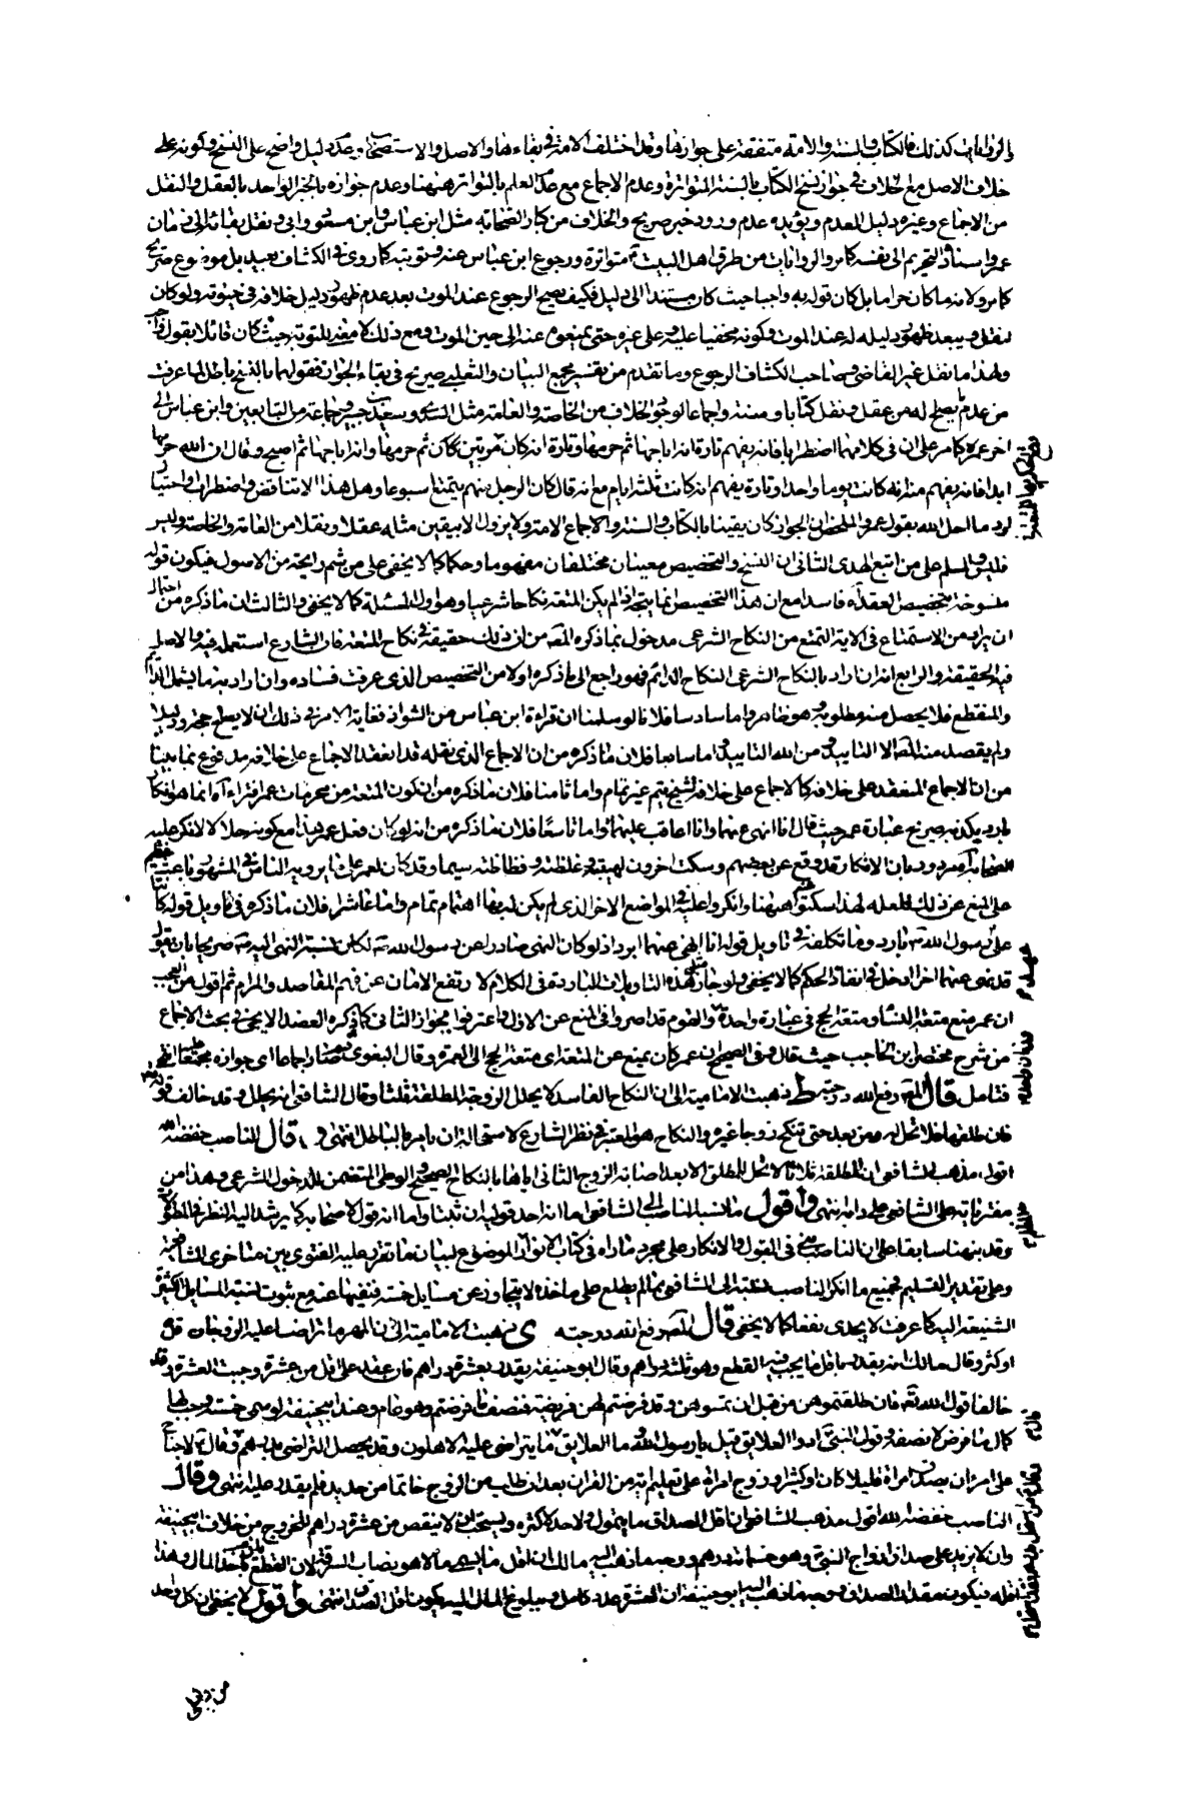 والروايات كذلك فالكتاب والسنة والامة متفقة على جوازها وقد اختلف الامة في بقاءها والاصل والاستصحاب وعدم دليل واضح على النسخ وكونه على
خلاف الاصل مع خلاف في جواز نسخ الكتاب بالسنة المتواترة وعدم الاجماع مع عدم العلم بالتواتر ههنا وعدم جوازه بالخبر الواحد بالعقل والنقل
من الاجماع وغيره دليل العدم ويؤيده عدم ورود خبر صريح والخلاف من كبار الصحابة مثل ابن عباس وابن مسعود وابي ونقل بقائه الى زمان
عمر واسناد التحريم الى نفسه كما مر والروايات من طرق اهل البيت متواترة ورجوع ابن عباس عنه وتوبته كما روى في الكشاف بعيد بل موضوع صريح
كما مر ولانه ما كان حراما بل كان قوله به واجبا حيث كان مستندا الى دليل فكيف يصح الرجوع عند الموت بعد عدم ظهور دليل خلافه في حيوته ولو كان
لنقل ويبعد ظهور دليله له عند الموت وكونه مخفيا عليه وعلى غيره حتى يمنعوه عنه الى حين الموت ومع ذلك لا معنى للتوبة حيث كان قائلا بقول
ولهذا ما نقل غير القاضي وصاحب الكشاف الرجوع وما تقدم من تفسير مجمع البيان والثعلبي صريح في بقاء الجواز فقولهما بالنسخ باطل لما عرفت
من عدم ما يصلح له من عقل ونقل كتابا وسنة واجماعا لوجود الخلاف من الخاصة والعامة مثل السدي وسعيد بن جبير وجماعة من التابعين وابن عباس الى
اخر عمره كما مر على ان في كلامهما اضطرابا فانه يفهم تارة انه اباحها ثم حرمها وتارة انه كان مرتين كان ثم حرمها وانه اباحها ثم اصبح وقال ان الله حرمها
ابدا فانه يفهم منه انه كانت يوما واحدا وتارة يفهم انه كانت ثلثة ايام مع انه قال كان الرجل منهم يتمتع اسبوعا وهل هذا الا تناقض واضطراب واحتيال
لرد ما احل الله بقول عمر والملخص ان الجواز كان يقينا بالكتاب والسنة والاجماع الامة ولا يزول الا بيقين مثله عقلا ونقلا من العامة والخاصة وليس
فليس والسلم على من اتبع الهدى الثاني ان النسخ والتخصيص معنيان مختلفان مفهوما وحكما كما لا يخفى على من شم رايحة من الاصول فيكون قوله
منسوخة بتخصيص العقد له فاسدا مع ان هذا التخصيص انما يتجه اذا لم يكن المتعة نكاحا شرعيا وهو اول المسئلة كما لا يخفى والثالث ان ما ذكره من احتمال
ان يراد من الاستمتاع في الاية التمتع من النكاح الشرعي مدخول بما ذكره المص من ان ذلك حقيقة في نكاح المتعة فان الشارع استعمله فيه والاصل
فيه الحقيقة والرابع انه ان اراد بالنكاح الشرعي النكاح الدائم فهو راجع الى ما ذكره اولا من التخصيص الذي عرفت فساده وان اراد به ما يشمل الدائم
والمنقطع فلا يحصل منه مطلوبه وهو ظاهر واما سادسا فلانا لو سلمنا ان قراءة ابن عباس من الشواذ فغاية الامر في ذلك ان لا يصلح حجة ودليلا
ولم يقصد منه المص الا التاييد ومن الله التاييد واما سابعا فلان ما ذكره من ان الاجماع الذي نقله قد انعقد الاجماع على خلافه مدفوع بما بينا
من ان الاجماع المنعقد على خلافه كالاجماع على خلافة شيخ تيم غير تمام واما ثامنا فلان ما ذكره من ان كون المتعة من محرمات عمر افتراء اه انما هو افك
بارد يكذبه صريح عبارة عمر حيث قال انا انهى عنهما وانا اعاقب عليهما واما تاسعا فلان ما ذكره من انه لو كان فعل عمر هذا مع كونه حلالا لانكر عليه
الصحابة مردود بان الانكار قد وقع عن بعضهم وسكت اخرون لهيبته وغلظته وفظاظته سيما وقد كان لعمر على ما يرويه الناس في المشهور باعث عظيم
على المنع عن ذلك فلعله لهذا سكتوا ههنا وانكروا عليه في المواضع الاخر الذي لم يكن له بها اهتمام تمام واما عاشرا فلان ما ذكره في تاويل قوله كانتا
على عهد رسول الله ص بارد وما تكلفه في تاويل قوله انا انهى عنهما ابرد اذ لو كان النهي صادرا عن رسول الله ص لكان نسبة النهي اليه ص صريحا بان يقول
قد نهى عنهما اخرا ادخل في انفاذ الحكم كما لا يخفى ولو جاز مثل هذه التاويلات الباردة في الكلام لارتفع الامان عن فهم المقاصد والمرام ثم اقول من العجب
ان عمر منع متعة النساء ومتعة الحج في عبارة واحدة والقوم قد اصروا في المنع عن الاول واعترفوا بجواز الثاني كما ذكره العضد الايجي في بحث الاجماع
من شرح مختصر ابن الحاجب حيث قال وفي الصحيح ان عمر كان ينهى عن المتعة اى متعة الحج الى العمرة وقال البغوي ثم صار اجماعا اى جوازه مجتمعا
فتامل قال المص رفع الله درجته ط ذهبت الامامية الى ان النكاح الفاسد لا يحلل الزوجة المطلقة ثلثا وقال الشافعي انه يحلل وقد خالف قوله
فان طلقها فلا تحل له من بعد حتى تنكح زوجا غيره والنكاح هو المعتبر في نظر الشارع لاستحالة ان يامر بالباطل انتهى و قال الناصب خفضه الله
اقول مذهب الشافعي ان المطلقة ثلاثا لا تحل للمطلق الا بعد اصابة الزوج الثاني اياها بالنكاح الصحيح والوطى المتضمن للدخول الشرعي وهذا من
مفترياته على الشافعي على دابه انتهى واقول ما نسبه الناصب الى الشافعي اما انه احد قوليه ان ثبتا واما انه قول لاصحابه كما يرشد اليه النظر في المطولات
وقد نبهنا سابقا على ان الناصب يبني في القول والانكار على مجرد ما راه في كتاب الانوار الموضوع لبيان ما تقرر عليه الفتوى بين متاخري الشافعية
وعلى تقدير التسليم فجميع ما انكر الناصب نسبته الى الشافعي بما لم يطلع على ماخذه لا يتجاوز عن مسايل خمسة فنفيها عنه مع ثبوت نسبة المسايل الكثيرة
الشنيعة اليه كما عرفت لا يجدى نفعا كما لا يخفى قال المص رفع الله درجته ى ذهبت الامامية الى ان المهر ما تراضيا عليه الزوجان قل
او كثر وقال مالك انه يقدر باقل ما يجب فيه القطع وهو ثلثة دراهم وقال ابو حنيفة يقدر بعشرة دراهم فان عقد على اقل من عشرة وجبت العشرة وقد
خالفا قول الله تعه فان طلقتموهن من قبل ان تمسوهن وقد فرضتم لهن فريضة فنصف ما فرضتم وهو عام وعند ابيحنيفة لو سمى خمسة وجب لها
كمال ما فرض لا نصفه وقول النبي ادوا العلايق قيل يا رسول الله وما العلايق قال ما يتراضى عليه الاهلون وقد يحصل التراضى على درهم وقال لا جناح
على امرئ ان يصدق امراة قليلا كان او كثيرا وزوج امراة على تعليم اية من القران بعد ان طلب من الزوج خاتما من حديد فلم يقدر عليه انتهى وقال
الناصب خفضه الله اقول مذهب الشافعي ان اقل الصداق ما يتمول ولا حد لاكثره ويستحب ان لا ينقص من عشرة دراهم للخروج من خلاف ابيحنيفة
وان لا يزيد على صداق ازواج النبي وهو خمسمائة درهم ووجه ما ذهب اليه مالك ان اقل ما يسمى مالا هو نصاب السرقة لان القطع باخذ المال وهذا
اقله فيكون مقدار الصداق ووجه ما ذهب اليه ابو حنيفة ان العشرة عدد كامل ومبلوغ المال اليه يكون اقل الصداق انتهى واقول لا يخفى ان كل واحد